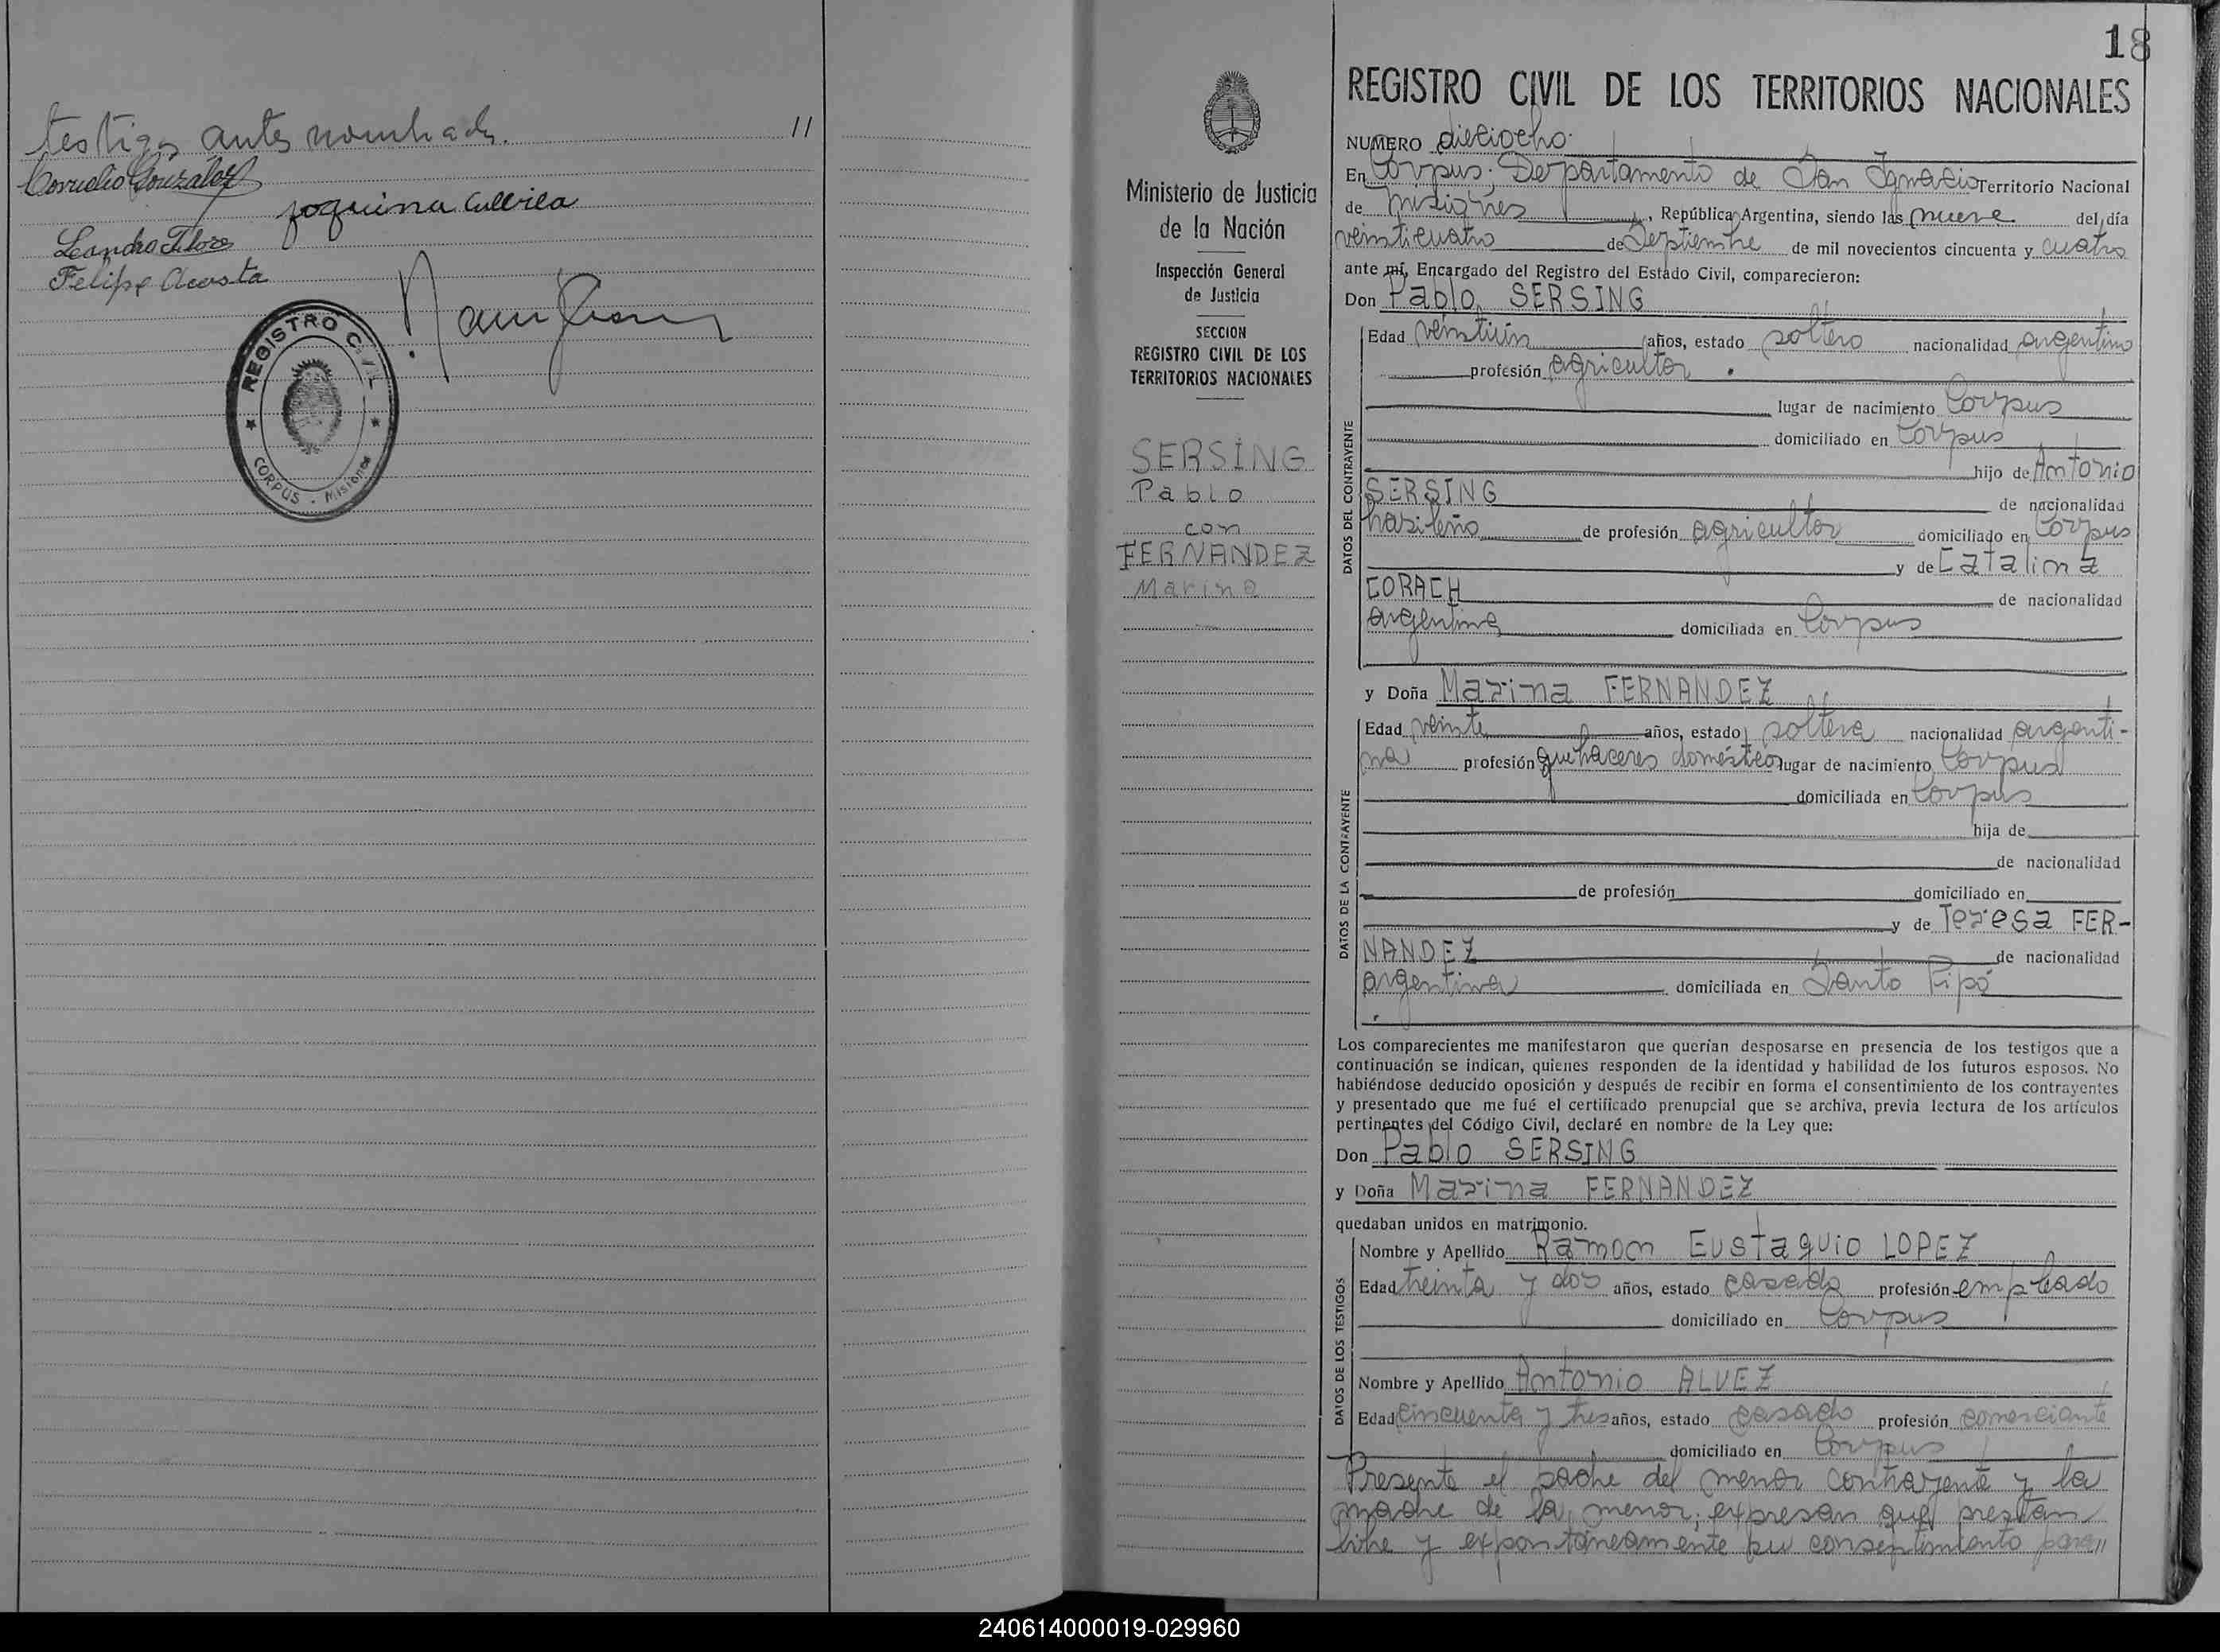 testigos antes nombrados. //
Cornelio González
Leandro Flores
Felipe Acosta
REGISTRO CIVIL
CORPUS - Misiones
18
Ministerio de Justicia
de la Nación
Inspección General
de Justicia
SECCION
REGISTRO CIVIL DE LOS
TERRITORIOS NACIONALES
SERSING
Pablo
con
FERNANDEZ
Marina
REGISTRO CIVIL DE LOS TERRITORIOS NACIONALES
NUMERO dieciocho.
En Corpus; Departamento de San Ignacio Territorio Nacional
de Misiones, República Argentina, siendo las nueve del día
veinticuatro de Septiembre de mil novecientos cincuenta y cuatro
ante mí, Encargado del Registro del Estado Civil, comparecieron:
Don Pablo SERSING
DATOS DEL CONTRAYENTE
Edad veintiún años, estado soltero nacionalidad argentino
profesión agricultor.
lugar de nacimiento Corpus
domiciliado en Corpus
hijo de Antonio
SERSING de nacionalidad
brasileño de profesión agricultor domiciliado en Corpus
y de Catalina
CORACH de nacionalidad
argentina domiciliada en Corpus
y Doña Marina FERNANDEZ
DATOS DE LA CONTRAYENTE
Edad veinte años, estado soltera nacionalidad argenti-
na profesión quehaceres domésticos lugar de nacimiento Corpus
domiciliada en Corpus
hija de
de nacionalidad
de profesión domiciliado en
y de Teresa FER-
NANDEZ de nacionalidad
argentina domiciliada en Santo Pipó
Los comparecientes me manifestaron que querían desposarse en presencia de los testigos que a
continuación se indican, quienes responden de la identidad y habilidad de los futuros esposos. No
habiéndose deducido oposición y después de recibir en forma el consentimiento de los contrayentes
y presentado que me fué el certificado prenupcial que se archiva, previa lectura de los artículos
pertinentes del Código Civil, declaré en nombre de la Ley que:
Don Pablo SERSING
y Doña Marina FERNANDEZ
quedaban unidos en matrimonio.
DATOS DE LOS TESTIGOS
Nombre y Apellido Ramon Eustaquio LOPEZ
Edad treinta y dos años, estado casado profesión empleado
domiciliado en Corpus
Nombre y Apellido Antonio ALVEZ
Edad cincuenta y tres años, estado casado profesión comerciante
domiciliado en Corpus
Presente el padre del menor contrayente y la
madre de la menor; expresan que prestan
libre y expontáneamente su consentimiento para//
240614000019-029960